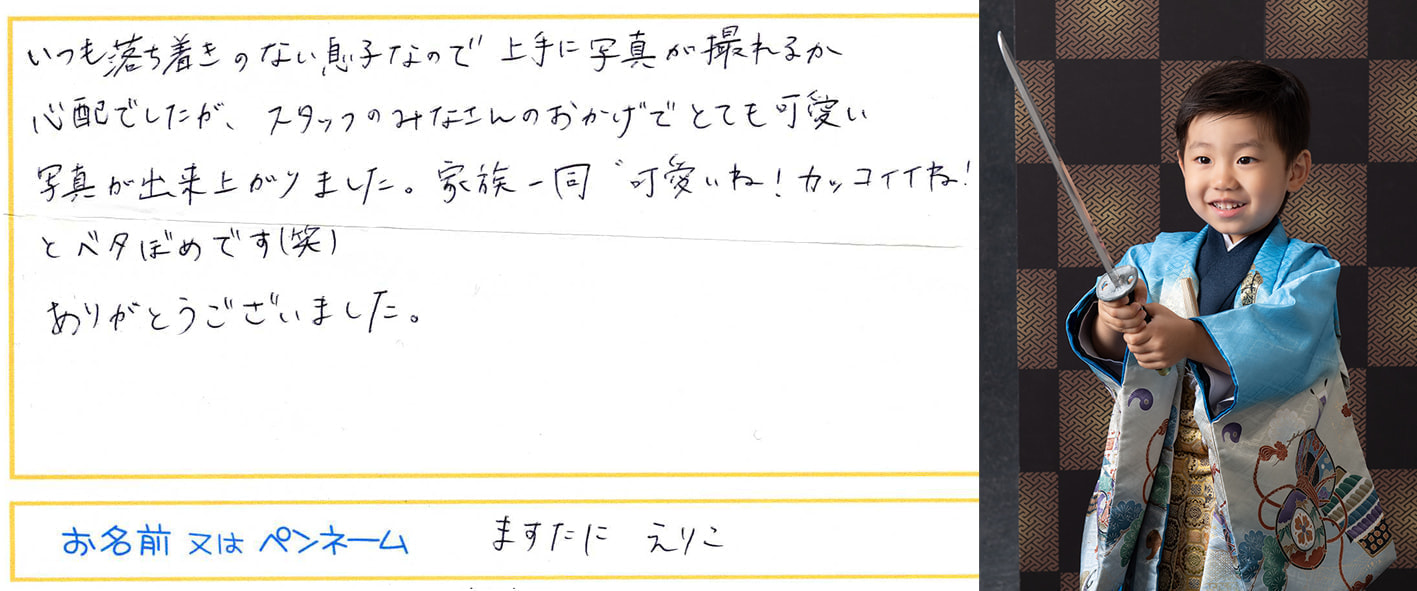 いつも落ち着きのない息子なので上手に写真が撮れるか
心配でしたが、スタッフのみなさんのおかげでとても可愛い
写真が出来上がりました。家族一同“可愛いね！カッコイイね！
とベタぼめです(笑)
ありがとうございました。
お名前 又は ペンネーム ますたに えりこ